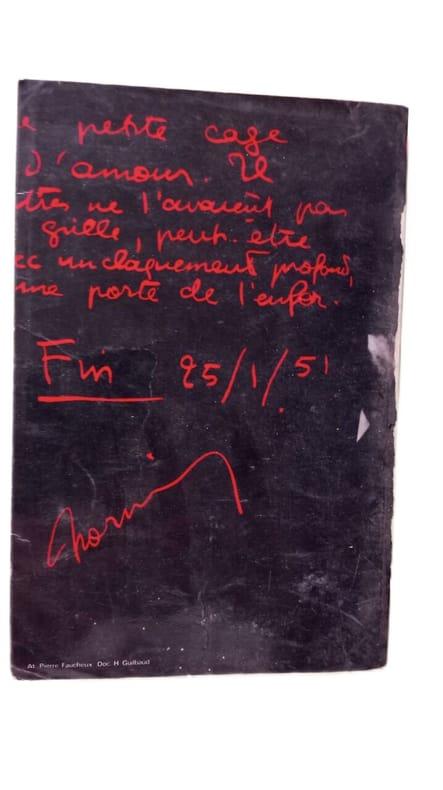 petite cage
d'amour. Il
ttes ne l'avaient pas
grille, peut-être
ec un claquement profond,
me porte de l'enfer.
Fin 25/1/51
At. Pierre Faucheux Doc. H Guilbaud